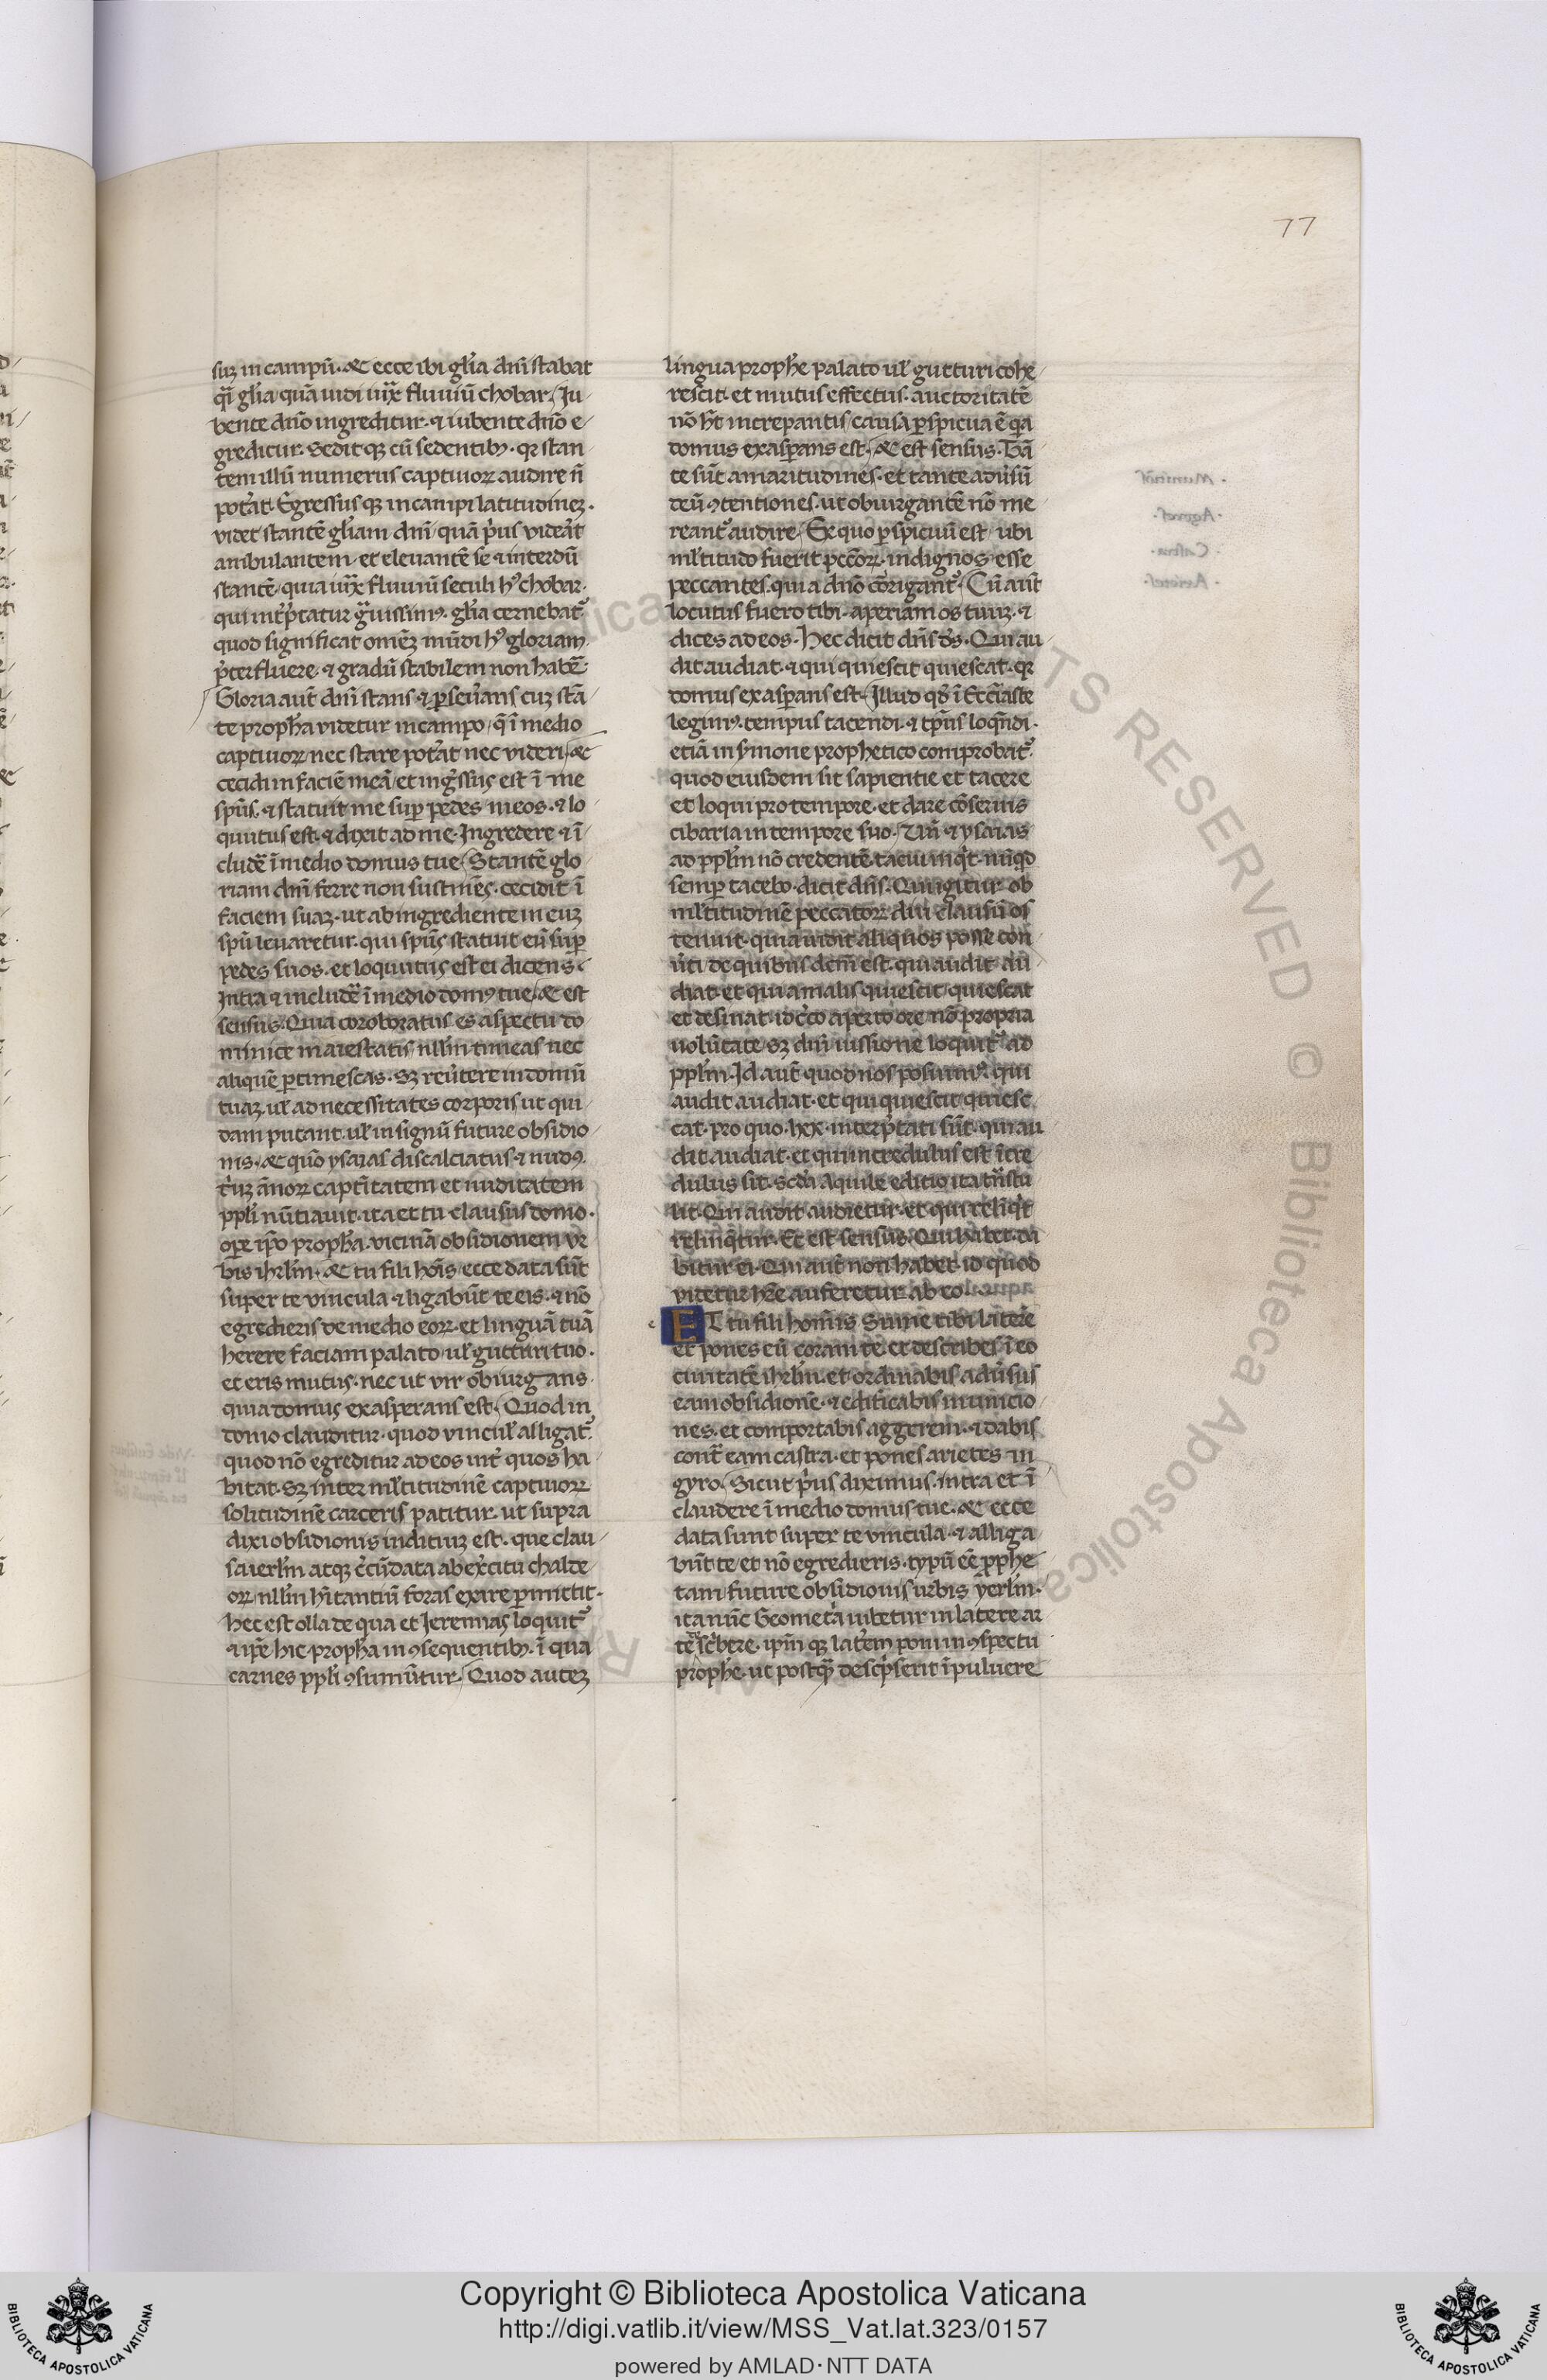 77
suꝫ in campū· ⁊c ecce ibi gl̓ia dn̄i stabat
q̄i gl̓ia quā uidi iux̄ fluuiū chobar / Iu-
bente dn̄o ingreditur· ⁊ iubente dn̄o e-
greditur· Sedit qꝫ cū sedentibꝫ· qꝛ stan-
tem illū numerus captiuoꝝ audire n̄
pot̓at· Egressus qꝫ in campi latitudineꝫ·
videt stantē gl̓iam dn̄i / quā p̓us vid̓at
ambulantem· et eleuantē se ⁊ interdū
stantē· quia iux̄ fluuiū seculi hꝰ chobar·
qui int̓p̄tatur g̓uissimꝰ· gl̓ia cernebat᷑
quod significat om̄eꝫ mūdi hꝰ gloriam
p̄terfluere· ⁊ gradū stabilem non habē·
Gloria aut̄ dn̄i stans ⁊ p̱seu̓ans cuꝫ stā-
te proph̄a videtur in campo / q̄ ī medio
captiuoꝝ nec stare pot̓at nec videri / ⁊c
cecidi in faciē meā / et ing̓ssus est ī me
sp̄us· ⁊ statuit me sup̱ pedes meos· ⁊ lo-
quutus est· ⁊ dixit ad me· Ingredere ⁊ ī-
cludē ī medio domus tue / Stantē glo-
riam dn̄i ferre non sustinēs· cecidit ī
faciem suaꝫ· ut ab ingrediente in euꝫ
spū leuaretur· qui sp̄us statuit eū sup̱
pedes suos· et loquutus est ei dicens·
Intra ⁊ includē ī medio domꝰ tue / ⁊c est
sensus· Quia coroboratus es aspectu do-
minice maiestatis / nll̓m timeas nec
aliquē p̱timescas· Sꝫ reu̓tere in domū
tuaꝫ· ul̓ ad necessitates corporis ut qui-
dam putant· ul̓ in signū future obsidio-
nis· ⁊c quō ysaias discalciatus ⁊ nudꝰ·
t̓uꝫ ānoꝝ captīitatem et nuditatem
ppl̓i nūtiauit· ita et tu clausus domo·
op̱e ip̄o proph̄a· vicinā obsidionem vr-
bis ih̓rl̓m· ⁊c tu fili hoīs / ecce data sūt
super te vincula ⁊ ligabūt te eis· ⁊ nō
egredieris de medio eoꝝ· et linguā tuā
herere faciam palato ul̓ gutturi tuo·
et eris mutus· nec ut vir obiurgans·
quia domus exasperans est / Quod in
domo clauditur· quod vincul̓ alligat᷑·
quod nō egreditur ad eos int̓ quos ha-
bitat· Sꝫ inter ml̓titudinē captiuoꝝ
solitudinē carceris patitur· ut supra
dixi obsidionis indituꝫ est· que clau-
sa ierl̓m atqꝫ c̓cūdata ab ex̓citu chalde-
oꝝ / nll̓m hītantiū foras exire p̱mittit·
hec est olla de qua et Ieremias loquit᷑
⁊ ip̄e hic proph̄a in ꝯsequentibꝫ· ī qua
carnes ppl̓i ꝯsumūtur / Quod auteꝫ
lingua proph̄e palato ul̓ gutturi cohe-
rescit· et mutus effectus· auctoritatē
nō h̄t increpantis / causa p̱spicua ē q̓a
domus exasp̱ans est / ⁊c est sensus· Tā-
te sūt amaritudines· et tante adu̓sū
deū ꝯtentiones· ut obiurgantē nō me-
reant᷑ audire / Ex quo p̱spicuū est / ubi
ml̓titudo fuerit pecc̄oꝝ· indignos esse
peccantes· qui a dn̄o cōrigant᷑ / Cū aūt
locutus fuero tibi· aperiam os tuuꝫ· ⁊
dices ad eos· Hec dicit dn̄s d̄s· Qui au-
dit audiat· ⁊ qui quiescit quiescat· qꝛ
domus exasp̱ans est / Illud qd̓ ī Ecc̄iaste
legimꝰ· tempus tacendi· ⁊ tp̄us loq̄ndi·
etiā in s̓mone prophetico comprobat᷑
quod eiusdem sit sapientie et tacere
et loqui pro tempore· et dare cōseruis
cibaria in tempore suo· Vn̄ ⁊ ysaias
ad ppl̓m nō credentē· tacui inq̓t· nūq̓d
semp̱ tacebo· dicit dn̄s· Qui igitur ob
ml̓titudinē peccatoꝝ diu clausū os
tenuit· quia uidit aliquos posse con-
u̓ti de quibus dcm̄ est· qui audit au-
diat· et qui a malis quiescit quiescat
et desinat· idc̓co aperto ore nō propria
uolūtate sꝫ dn̄i iussione loquit᷑ ad
ppl̓m· Id aut̄ quod nos posuimꝰ· qui
audit audiat· et qui quiescit quiesc-
cat· pro quo· lxx· interp̄tati sūt· qui au-
dit audiat· et qui incredulus est īcre-
dulus sit· scd̓a Aquile editio ita tn̄stu-
lit· Qui audit audietur· et qui relīq̓t
relinq̄tur· Et est sensus· Qui habet· da-
bitur ei· Qui aut̄ non habet· id quod
videtur hr̄e auferetur ab eo·
ET tu fili hoīnis Sume tibi lat̓em
et pones eū coram te· et describes ī eo
ciuitatē ih̓rl̓m· et ordinabis adu̓sus
eam obsidionē· ⁊ edificabis municio-
nes· et comportabis aggerem· ⁊ dabis
cont̓ eam castra· et pones arietes in
gyro· Sicut p̓us diximus· intra et ī-
claudere ī medio domus tue· ⁊c ecce
data sunt super te vincula· ⁊ alliga-
būt te / et nō egredieris· typū eē p̱phe-
tam / future obsidionis urbis yerl̓m·
ita nūc Geomet̓a iubetur in latere ar-
tē sc̓bere· ip̄m qꝫ lat̓em poni in ꝯspectu
proph̄e· ut postq̄ desc̓pserit ī puluere
Copyright © Biblioteca Apostolica Vaticana
http://digi.vatlib.it/view/MSS_Vat.lat.323/0157
powered by AMLAD·NTT DATA
BIBLIOTECA APOSTOLICA VATICANA
BIBLIOTECA APOSTOLICA VATICANA